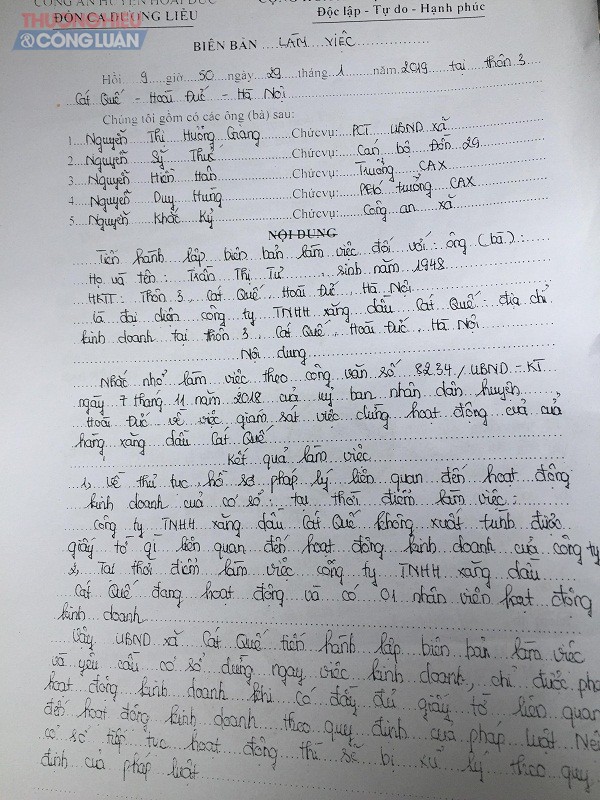 THƯƠNG HIỆU
& CÔNG LUẬN
CÔNG AN HUYỆN HOÀI ĐỨC
ĐỒN CA DƯƠNG LIỄU
Độc lập - Tự do - Hạnh phúc
BIÊN BẢN ....LÀM....VIỆC
Hồi 9 giờ 50 ngày 29 tháng 1 năm 2019 tại thôn 3
Cát Quế - Hoài Đức - Hà Nội
Chúng tôi gồm có các ông (bà) sau:
1 Nguyễn Thị Hương Giang Chức vụ: PCT UBND xã
2 Nguyễn Sỹ Chức vụ: Cán bộ Đồn 29
3 Nguyễn Hiền Chức vụ: Trưởng CAX
4 Nguyễn Duy Hưng Chức vụ: Phó trưởng CAX
5 Nguyễn Khắc Kỷ Chức vụ: Công an xã
NỘI DUNG
Tiến hành lập biên bản làm việc đối với: ông (bà):
Họ và tên: Trần Thị Tư, sinh năm 1948
HKTT: Thôn 3, Cát Quế, Hoài Đức, Hà Nội
là đại diện công ty TNHH xăng dầu Cát Quế: địa chỉ
kinh doanh tại thôn 3, Cát Quế, Hoài Đức, Hà Nội
Nội dung
Nhắc nhở làm việc theo công văn số 3234/UBND-KT
ngày 7 tháng 11 năm 2018 của uỷ ban nhân dân huyện
Hoài Đức về việc giám sát việc dừng hoạt động của cửa
hàng xăng dầu Cát Quế
Kết quả làm việc
1, Về thủ tục hồ sơ pháp lý liên quan đến hoạt động
kinh doanh của cơ sở: tại thời điểm làm việc:
Công ty TNHH xăng dầu Cát Quế không xuất trình được
giấy tờ gì liên quan đến hoạt động kinh doanh của công ty
2, Tại thời điểm làm việc công ty TNHH xăng dầu
Cát Quế đang hoạt động và có 01 nhân viên hoạt động
kinh doanh
Vậy UBND xã Cát Quế tiến hành lập biên bản làm việc
và yêu cầu cơ sở dừng ngay việc kinh doanh, chỉ được
hoạt động kinh doanh khi có đầy đủ giấy tờ liên quan
đến hoạt động kinh doanh theo quy định của pháp luật. Nế
cơ sở tiếp tục hoạt động thì sẽ bị xử lý theo quy
định của pháp luật